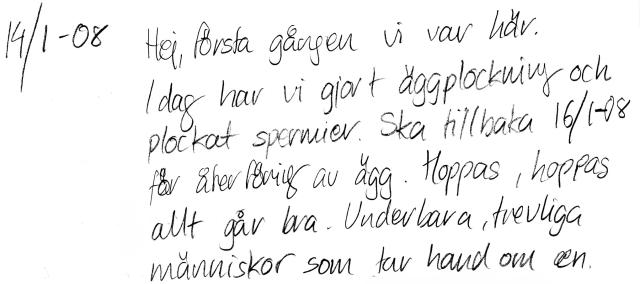 14/1-08 Hej, första gången vi var här.
Idag har vi gjort äggplockning och
plockat spermier. Ska tillbaka 16/1-08
för återföring av ägg. Hoppas, hoppas
allt går bra. Underbara, trevliga
människor som tar hand om en.